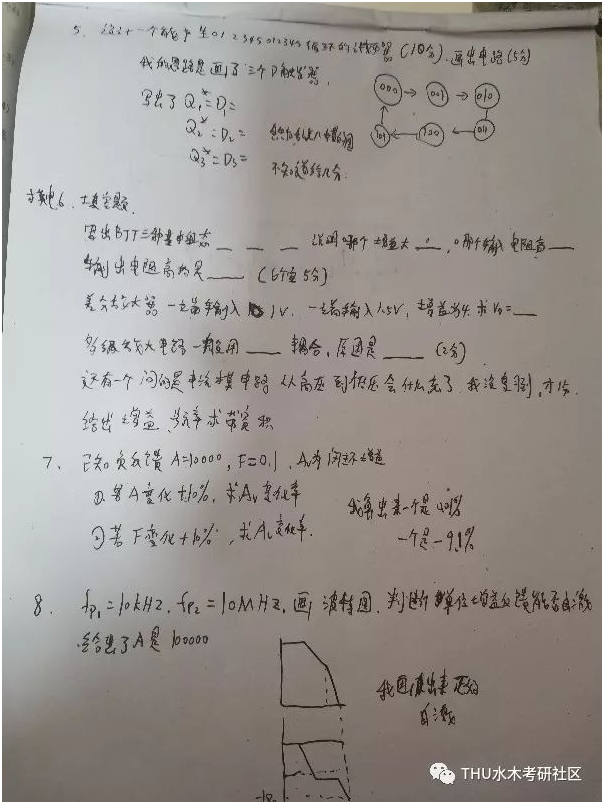 5. 设计一个能产生012345012345循环的计数器(10分).画出电路(5分)
我的思路是画了三个D触发器.
写出了 Q₁*=D₁=
Q₂*=D₂=
Q₃*=D₃=
不知道给几分.
000 → 001 → 010
101 ← 100 ← 011
模电6. 填空题.
写出BJT三种基本组态 _ _ _ 说明哪个增益大 _ , 哪个输入电阻高 _
输出电阻高的是 _ (每空5分)
差分放大器 一端输入 1V. 一端输入1.5V, 增益为4. 求V₀=_
多级放大电路一般用 _ 耦合, 原因是 _ (2分)
还有一个问的是 电路 从高压到低压会 我没复习到,
给出增益、 求带宽积
7、 已知负反馈 A=10000, F=0.1, Av为闭环增益
①若A变化+10%, 求Av变化率
②若F变化+10%, 求Av变化率.
我算出来一个是
一个是-9.1%
8. fp₁=10kHZ. fp₂=10MHZ. 画波特图. 判断单位增益反馈能否自激
给出了A是100000
我画出来 自激
-180
THU水木考研社区